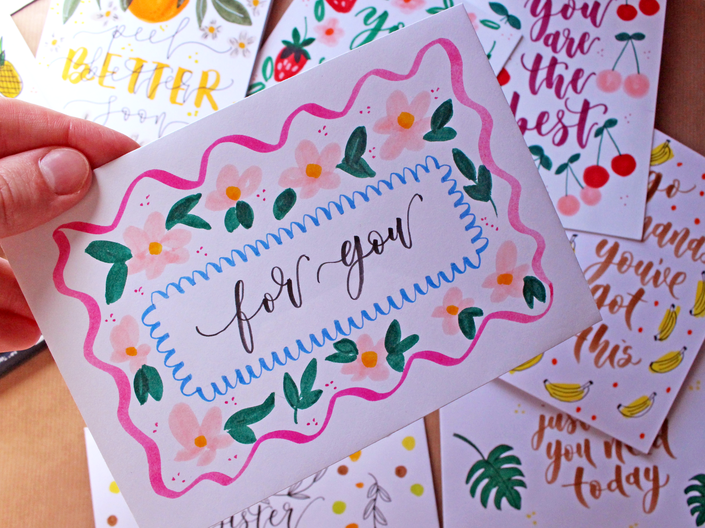 peel
Better
BETTER
soon
you
are
the
best
for you
go
you've
got
this
just
you need
today